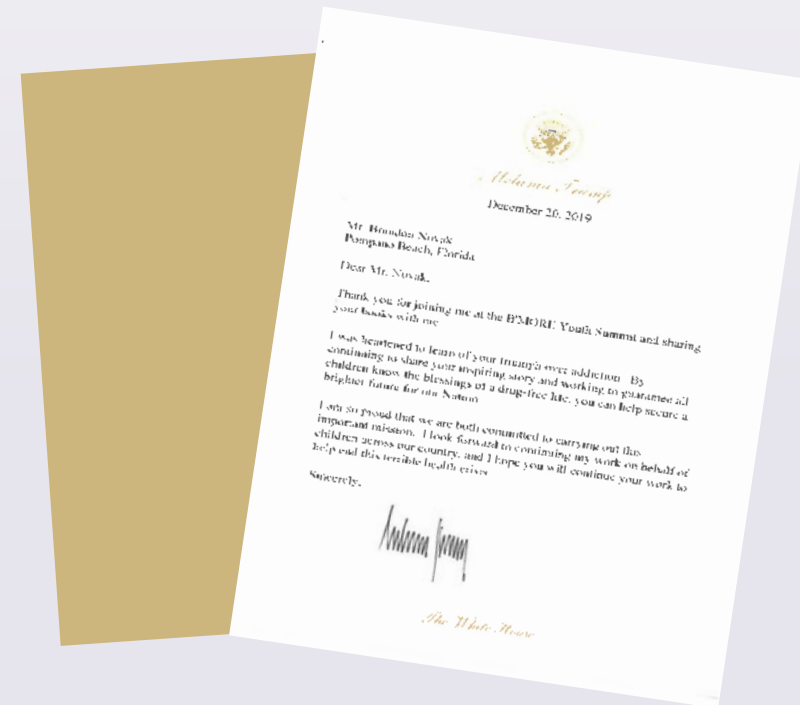 Melania Trump
December 20, 2019
Mr. Brandon Novak
Pompano Beach, Florida
Dear Mr. Novak,
Thank you for joining me at the B'MORE Youth Summit and sharing
your books with me
I was heartened to learn of your triumph over addiction By
continuing to share your inspiring story and working to guarantee all
children know the blessings of a drug-free life, you can help secure a
brighter future for our Nation
I am so proud that we are both committed to carrying out this
important mission. I look forward to continuing my work on behalf of
children across our country, and I hope you will continue your work to
help end this terrible health crisis
Sincerely,
The White House